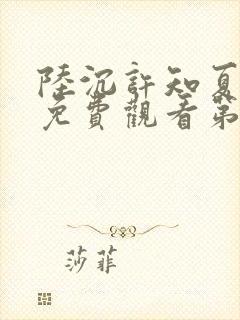 陸沉許知夏
免費觀看第
莎菲